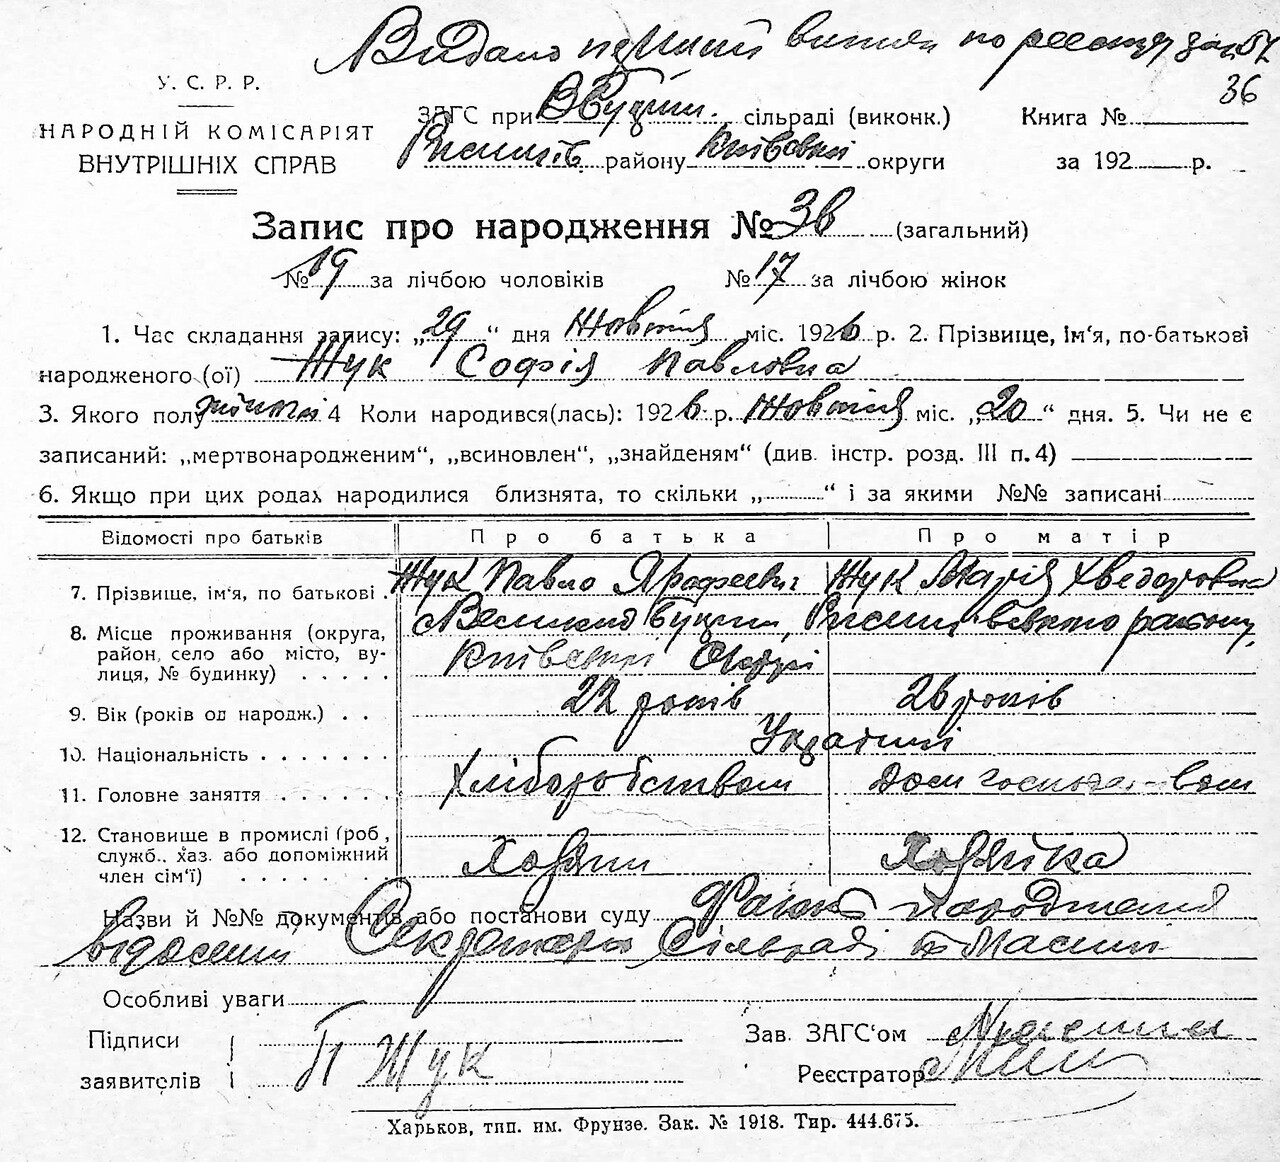 Видано первий витяг по реєстру за №52
36
У. С. Р. Р.
НАРОДНІЙ КОМІСАРІЯТ
ВНУТРІШНІХ СПРАВ
ЗАГС при В Бугаїв. сільраді (виконк.)
району Київської округи
Книга №
за 192 р.
Запис про народження № 36 (загальний)
№ 19 за лічбою чоловіків № 17 за лічбою жінок
1. Час складання запису: „29“ дня Жовтня міс. 1926 р. 2. Прізвище, ім'я, по-батькові
народженого (ої) Жук Софія Павловна
3. Якого полу жіночої 4 Коли народився(лась): 1926 р. Жовтня міс. „20“ дня. 5. Чи не є
записаний: „мертвонародженим“, „всиновлен“, „знайденям“ (див. інстр. розд. III п. 4)
6. Якщо при цих родах народилися близнята, то скільки „ “ і за якими №№ записані
Відомості про батьків Про батька Про матір
7. Прізвище, ім'я, по батькові Жук Павло Ярофеевич Жук Марія Хведоровна
8. Місце проживання (округа, район, село або місто, вулиця, № будинку) району
Київської Округи
9. Вік (років од народж.) 22 років 26 років
10. Національність Українці
11. Головне заняття Хліборобством Дом господа-вом
12. Становище в промислі (роб, служб., хаз. або допоміжний член сім'ї) Хозяин Хозяйка
Назви й №№ документів або постанови суду Факт народження
відомий Секретарю Сільради
Особливі уваги
Підписи заявителів П Жук
Зав. ЗАГС'ом
Реєстратор
Харьков, тип. им. Фрунзе. Зак. № 1918. Тир. 444.675.